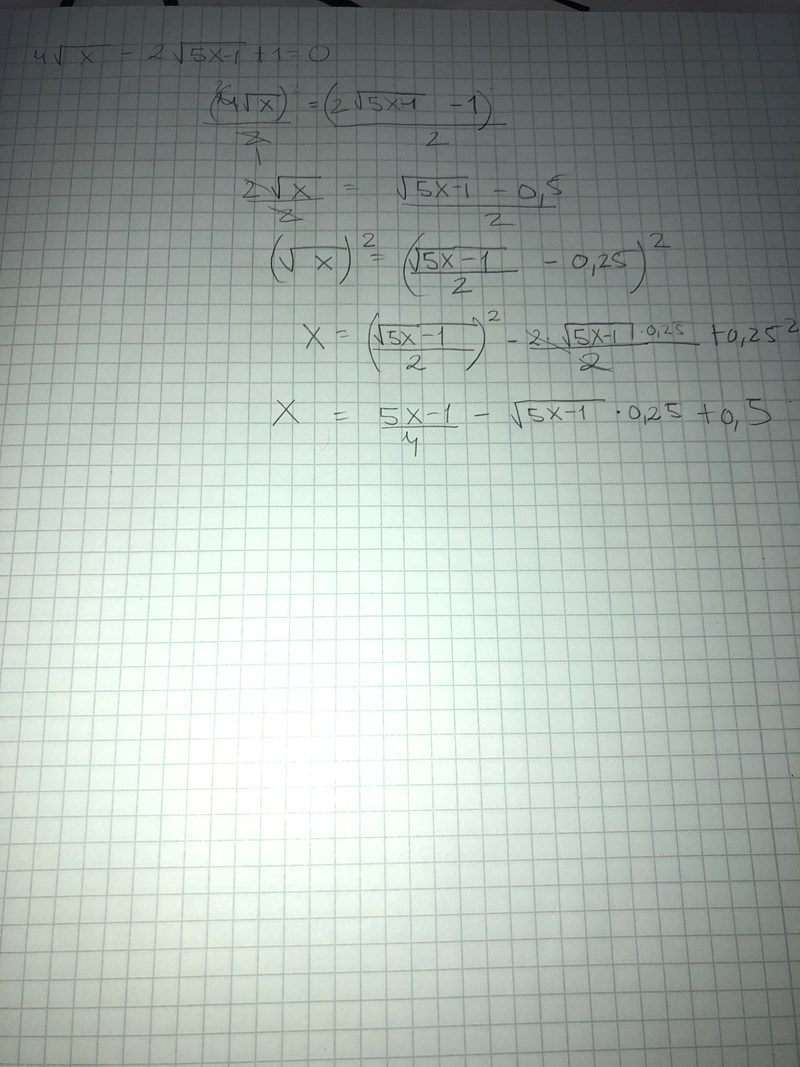 4√x - 2√5x-1 + 1 = 0
(4√x)/2 = (2√5x-1 - 1)/2
2√x/2 = √5x-1 - 0,5/2
(√x)² = (√5x-1/2 - 0,25)²
x = (√5x-1/2)² - 2·√5x-1·0,25/2 + 0,25²
x = 5x-1/4 - √5x-1·0,25 + 0,5